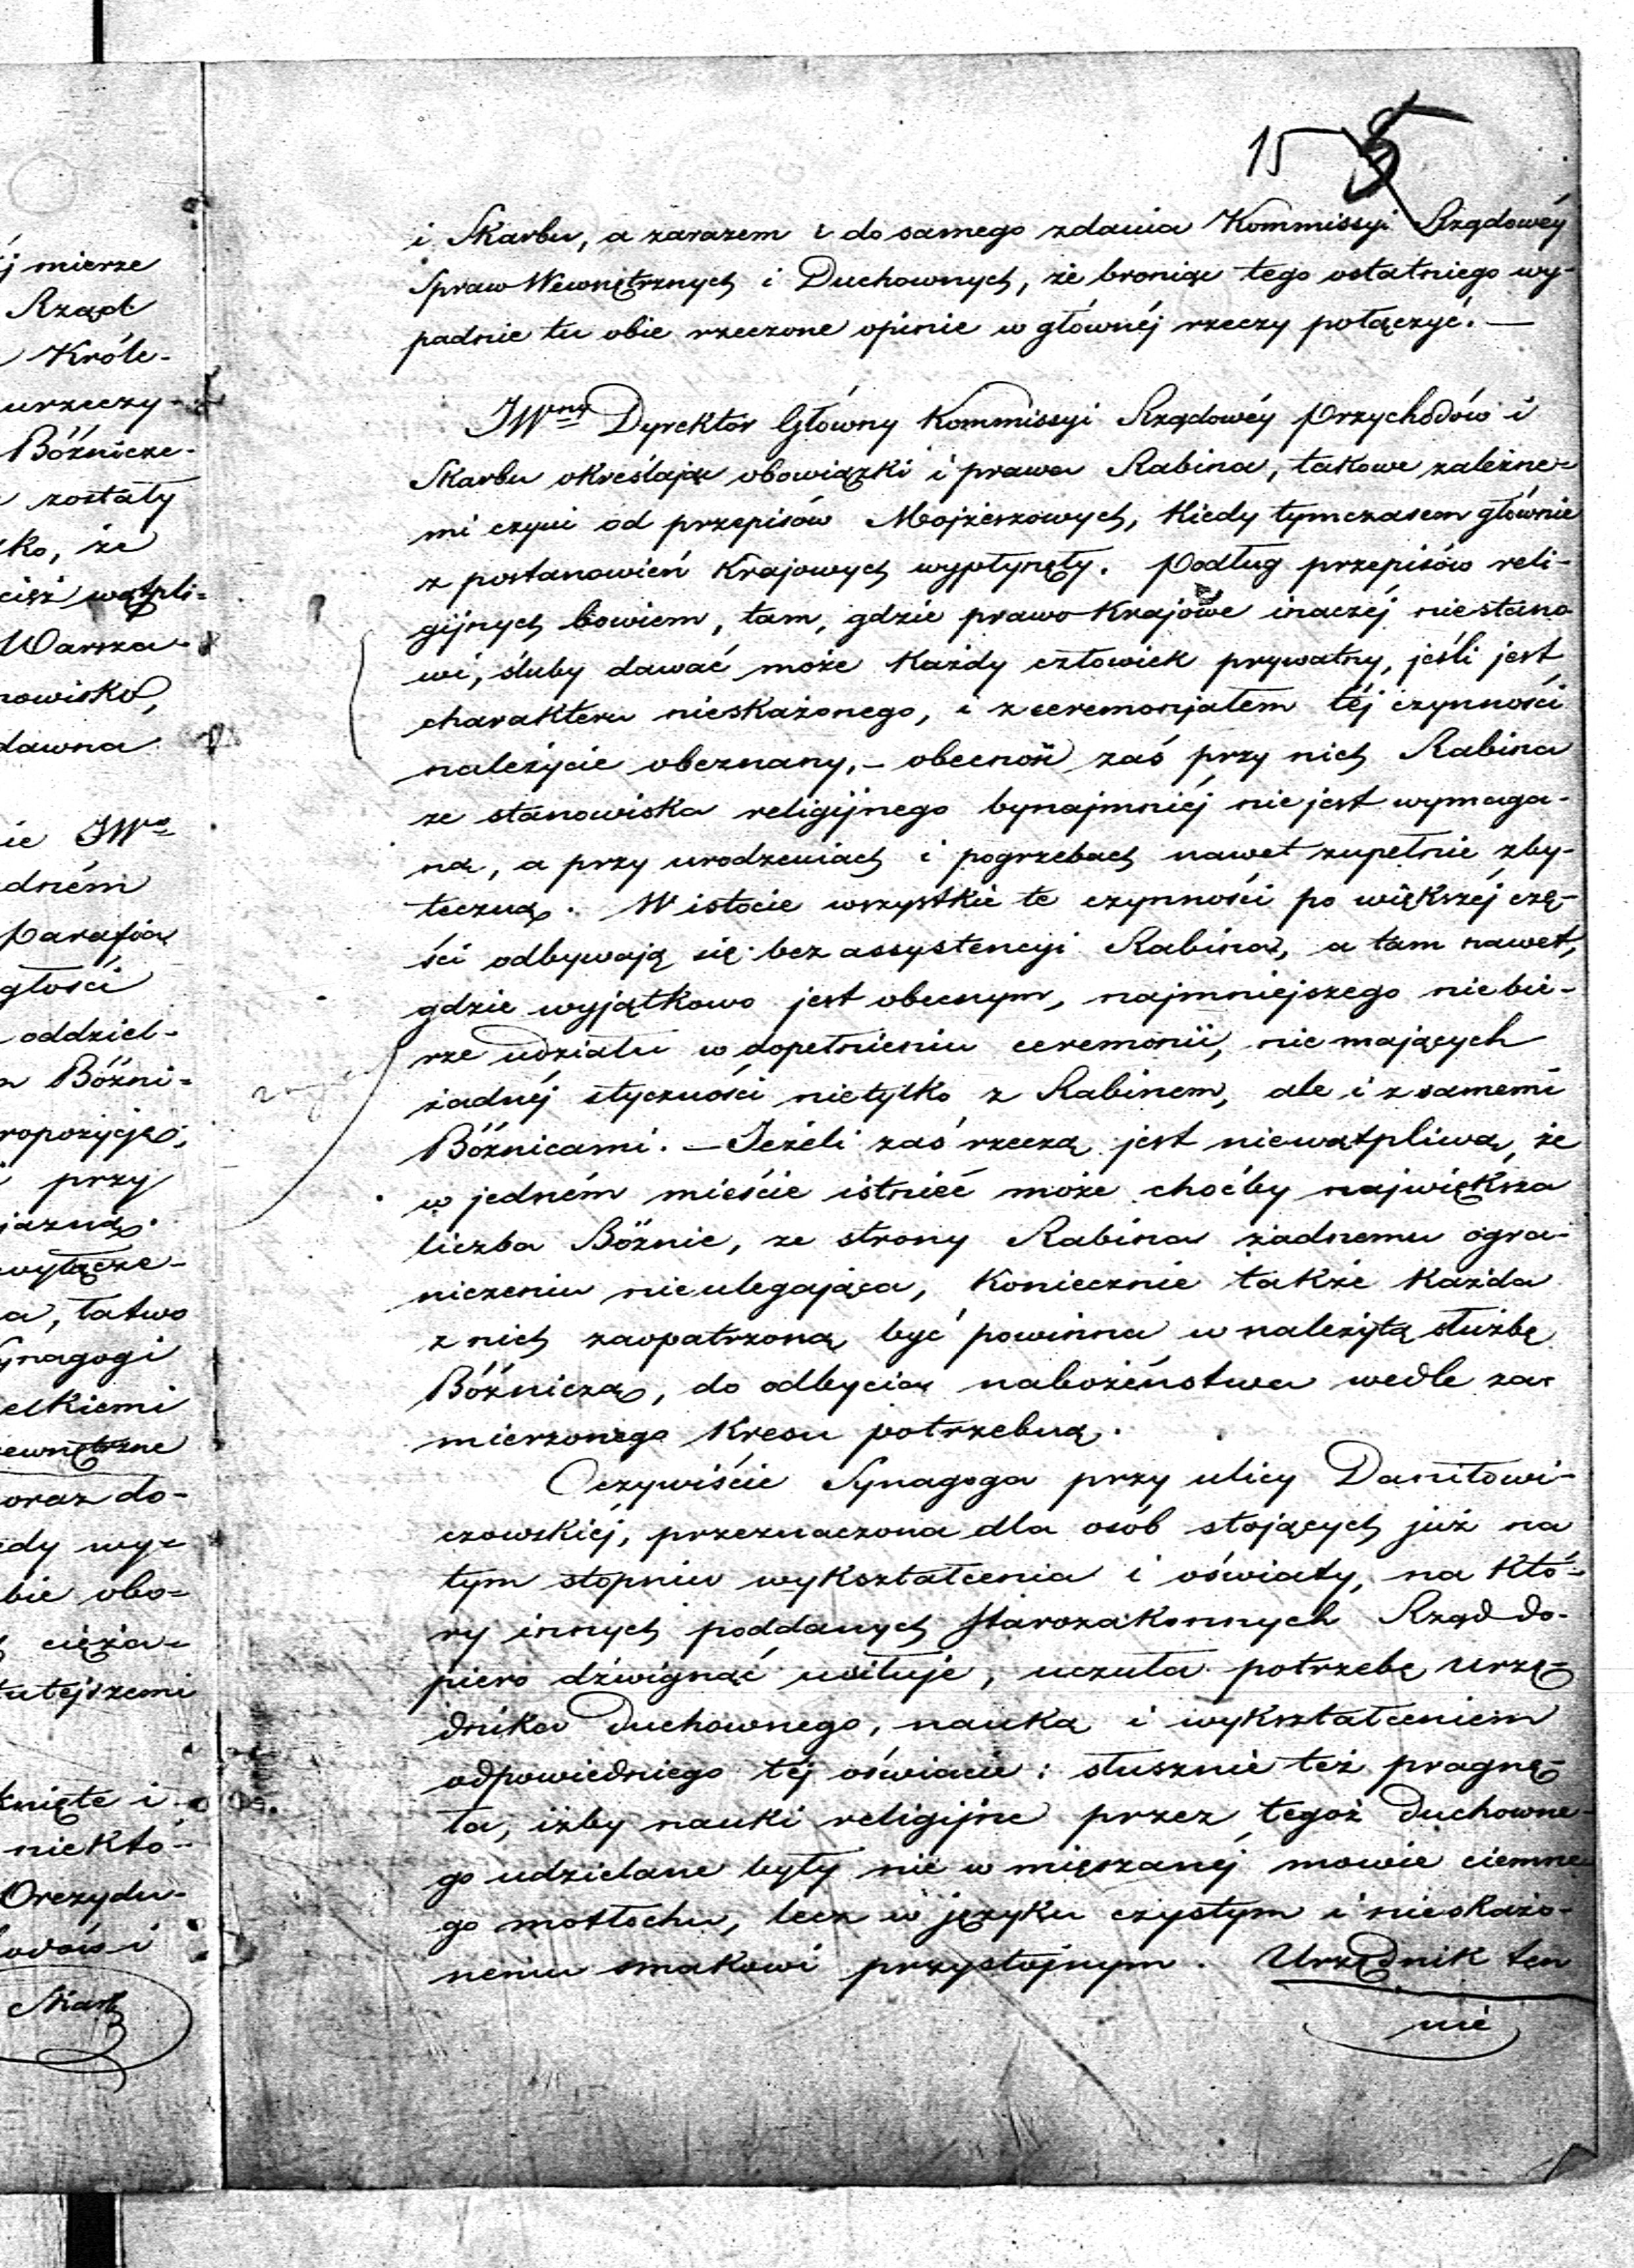 15
i Skarbu, a zarazem i do samego zdania Kommissyi Rządowéy
Spraw Wewnętrznych i Duchownych, że broniąc tego ostatniego wy-
padnie tu obie rzeczone opinie w głównéj rzeczy połączyć. —
JWny Dyrektor Główny Kommissyi Rządowéy Przychodów i
Skarbu określając obowiązki i prawa Rabina, takowe zależne-
mi czyni od przepisów Mojżeszowych, kiedy tymczasem głównie
z postanowień Krajowych wypłynęły. Podług przepisów reli-
gijnych bowiem, tam, gdzie prawo Krajowe inaczéj niestano
wi, śluby dawać może każdy człowiek prywatny, jeśli jest
charakteru nieskażonego, i z ceremonjałem téj czynności
należycie obeznany, – obecność zaś przy nich Rabina
ze stanowiska religijnego bynajmniéj nie jest wymaga-
ną, a przy urodzeniach i pogrzebach nawet zupełnie zby-
teczną. W istocie wszystkie te czynności po większéj czę-
ści odbywają się bez assystencyi Rabina, a tam nawet,
gdzie wyjątkowo jest obecnym, najmniejszego niebie-
rze udziału w dopełnieniu ceremonii, nie mających
żadnéj styczności nietylko z Rabinem, ale i z samemi
Bóżnicami. – Jeżeli zaś rzeczą jest niewątpliwą, że
w jedném mieście istnieć może choćby największa
liczba Bóżnic, ze strony Rabina żadnemu ogra-
niczeniu nieulegająca, koniecznie także każda
z nich zaopatrzoną być powinna w należytą służbę
Bóżniczą, do odbycia nabożeństwa wedle za-
mierzonego kresu potrzebną.
Oczywiście Synagoga przy ulicy Daniłowi-
czowskiéj, przeznaczona dla osób stojących już na
tym stopniu wykształcenia i oświaty, na któ-
ry innych poddanych starozakonnych Rząd do-
piero dźwignąć usiłuje, uczuła potrzebę urzę-
dnika Duchownego, nauką i wykształceniem
odpowiedniego téj oświacie: słusznie też pragnę-
ła, iżby nauki religijne przez tegoż Duchowne-
go udzielane były nie w mięszanéj mowie ciemne-
go motłochu, lecz w języku czystym i nieskażo-
nemu smakowi przystojnym. Urzędnik ten
nie
j mierze
Rząd
Króle-
urzeczy-
Bóżnicze-
zostały
że
wątpli-
Warsza-
nowisko,
dawna
ie JWo
dném
parafią
głości
oddziel-
Bóżni-
ropozycje,
przy
jazną.
wyłącze-
a, łatwo
ynagogi
elkiemi
ewnętrzne
oraz do-
edy wy-
bie obo-
cięża-
tutejszemi
knięte i
niektó-
Prezydu-
odów i
Skarb